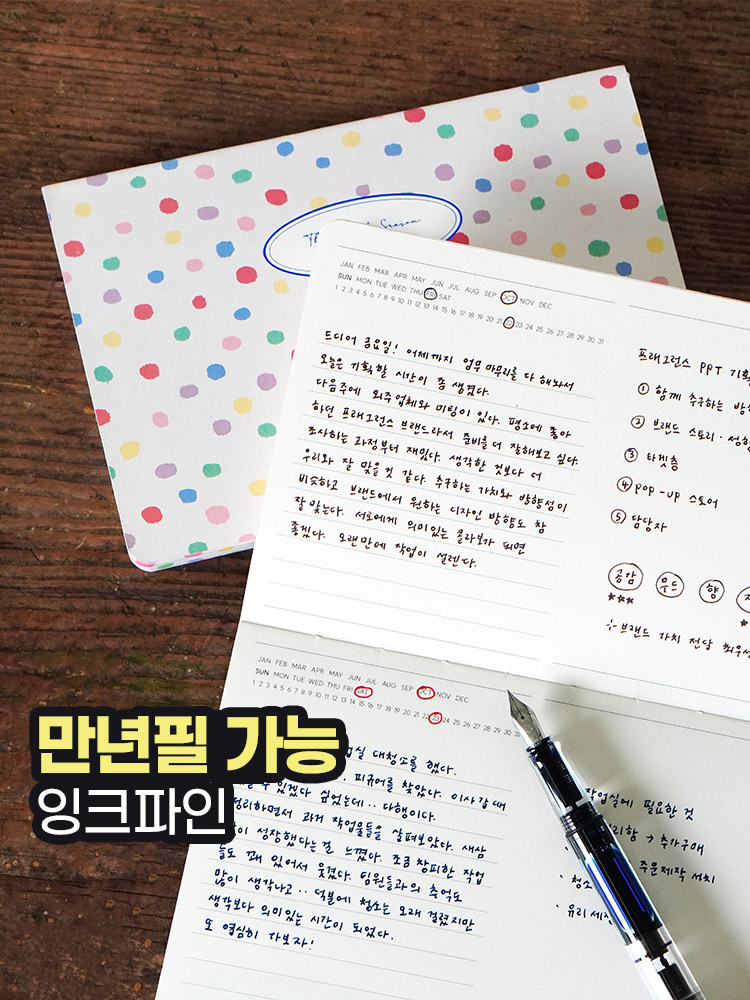 JAN FEB MAR APR MAY JUN JUL AUG SEP OCT NOV DEC
SUN MON TUE WED THU FRI SAT
1 2 3 4 5 6 7 8 9 10 11 12 13 14 15 16 17 18 19 20 21 22 23 24 25 26 27 28 29 30 31
드디어 금요일! 어제까지 업무 마무리를 다 해놔서
오늘은 기획할 시간이 좀 생겼다.
다음주에 외주업체와 미팅이 있다. 평소에 좋아
하던 프래그런스 브랜드라서 준비를 더 잘해보고 싶다.
조사하는 과정부터 재밌다. 생각한 것보다 더
우리와 잘 맞을 것 같다. 추구하는 가치와 방향성이
비슷하고 브랜드에서 원하는 디자인 방향도 참
잘 맞는다. 서로에게 의미있는 콜라보가 되면
좋겠다. 오랜만에 작업이 설렌다.
프래그런스 PPT 기획
① 함께 추구하는 방향
② 브랜드 스토리 · 성향
③ 타겟층
④ pop-up 스토어
⑤ 담당자
공감 무드 향
***
브랜드 가치 전달 최우선
JAN FEB MAR APR MAY JUN JUL AUG SEP OCT NOV DEC
SUN MON TUE WED THU FRI SAT
1 2 3 4 5 6 7 8 9 10 11 12 13 14 15 16 17 18 19 20 21 22 23 24 25 26 27 28 29 30 31
만년필 가능
잉크파인
대청소를 했다.
피규어를 찾았다. 이사갈 때
있겠다 싶었는데.. 다행이다.
정리하면서 과거 작업물들을 살펴보았다. 새삼
성장했다는 걸 느꼈다. 조금 창피한 작업
들도 꽤 있어서 웃겼다. 팀원들과의 추억도
많이 생각나고.. 덕분에 청소는 오래 걸렸지만
생각보다 의미있는 시간이 되었다.
또 열심히 가보자!
작업실에 필요한 것
→ 추가구매
주문제작 서치
· 청소
· 유리 세정